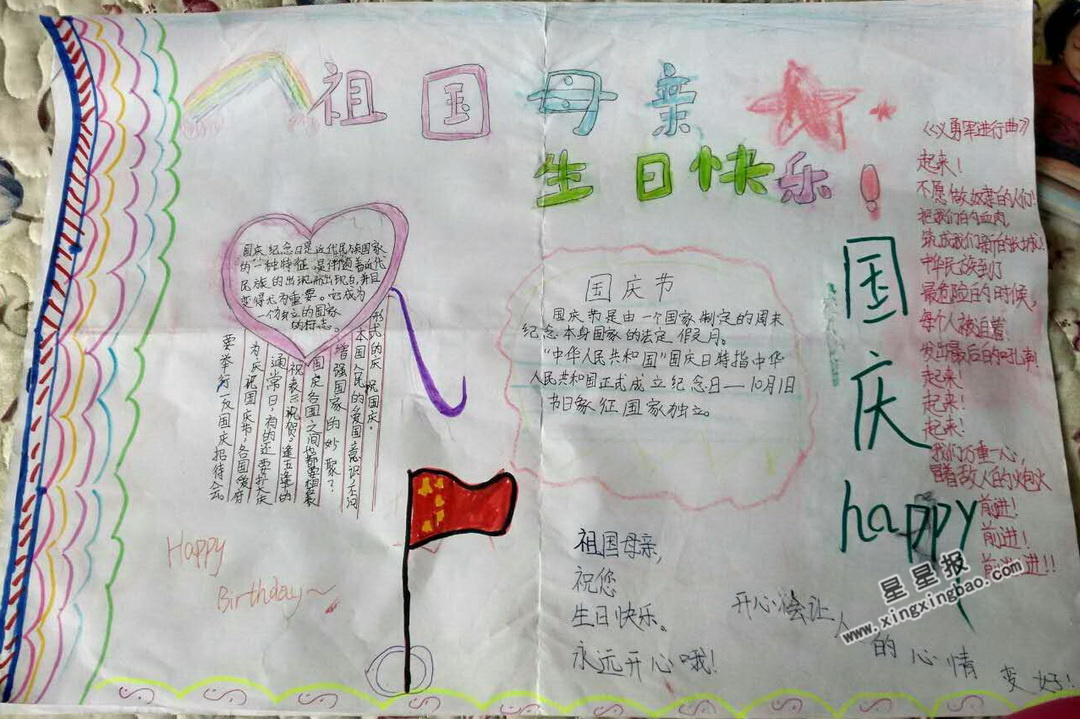 祖国母亲
生日快乐!
国庆纪念日是近代民族国家
的一种特征,是伴随着近代
民族的出现而出现的,并且
变得尤为重要。它成为
一个独立的国家
的标志。
形式的庆祝国庆。
国定各国之间也都要相
祝表示祝贺。逢五逢十的
通常日,有的还要扩大庆
为庆祝国庆节,各国政府
要举行一反国庆招待会。
Happy
Birthday~
国庆节
国庆节是由一个国家制定的周来
纪念本身国家的法定假月。
"中华人民共和国"国庆日特指中华
人民共和国正式成立纪念日—10月1日
节日象征国家独立。
祖国母亲,
祝您
生日快乐。
永远开心哦!
国庆
happy
开心会让人的心情变好!
《义勇军进行曲》
起来!
不愿做奴隶的人们!
把我们的血肉,
筑成我们新的长城!
中华民族到了
最危险的时候,
每个人被迫着
发出最后的吼声!
起来!
起来!
起来!
我们万重一心,
冒着敌人的炮火
前进!
前进!
前进进!!
星星报
www.xingxingbao.com